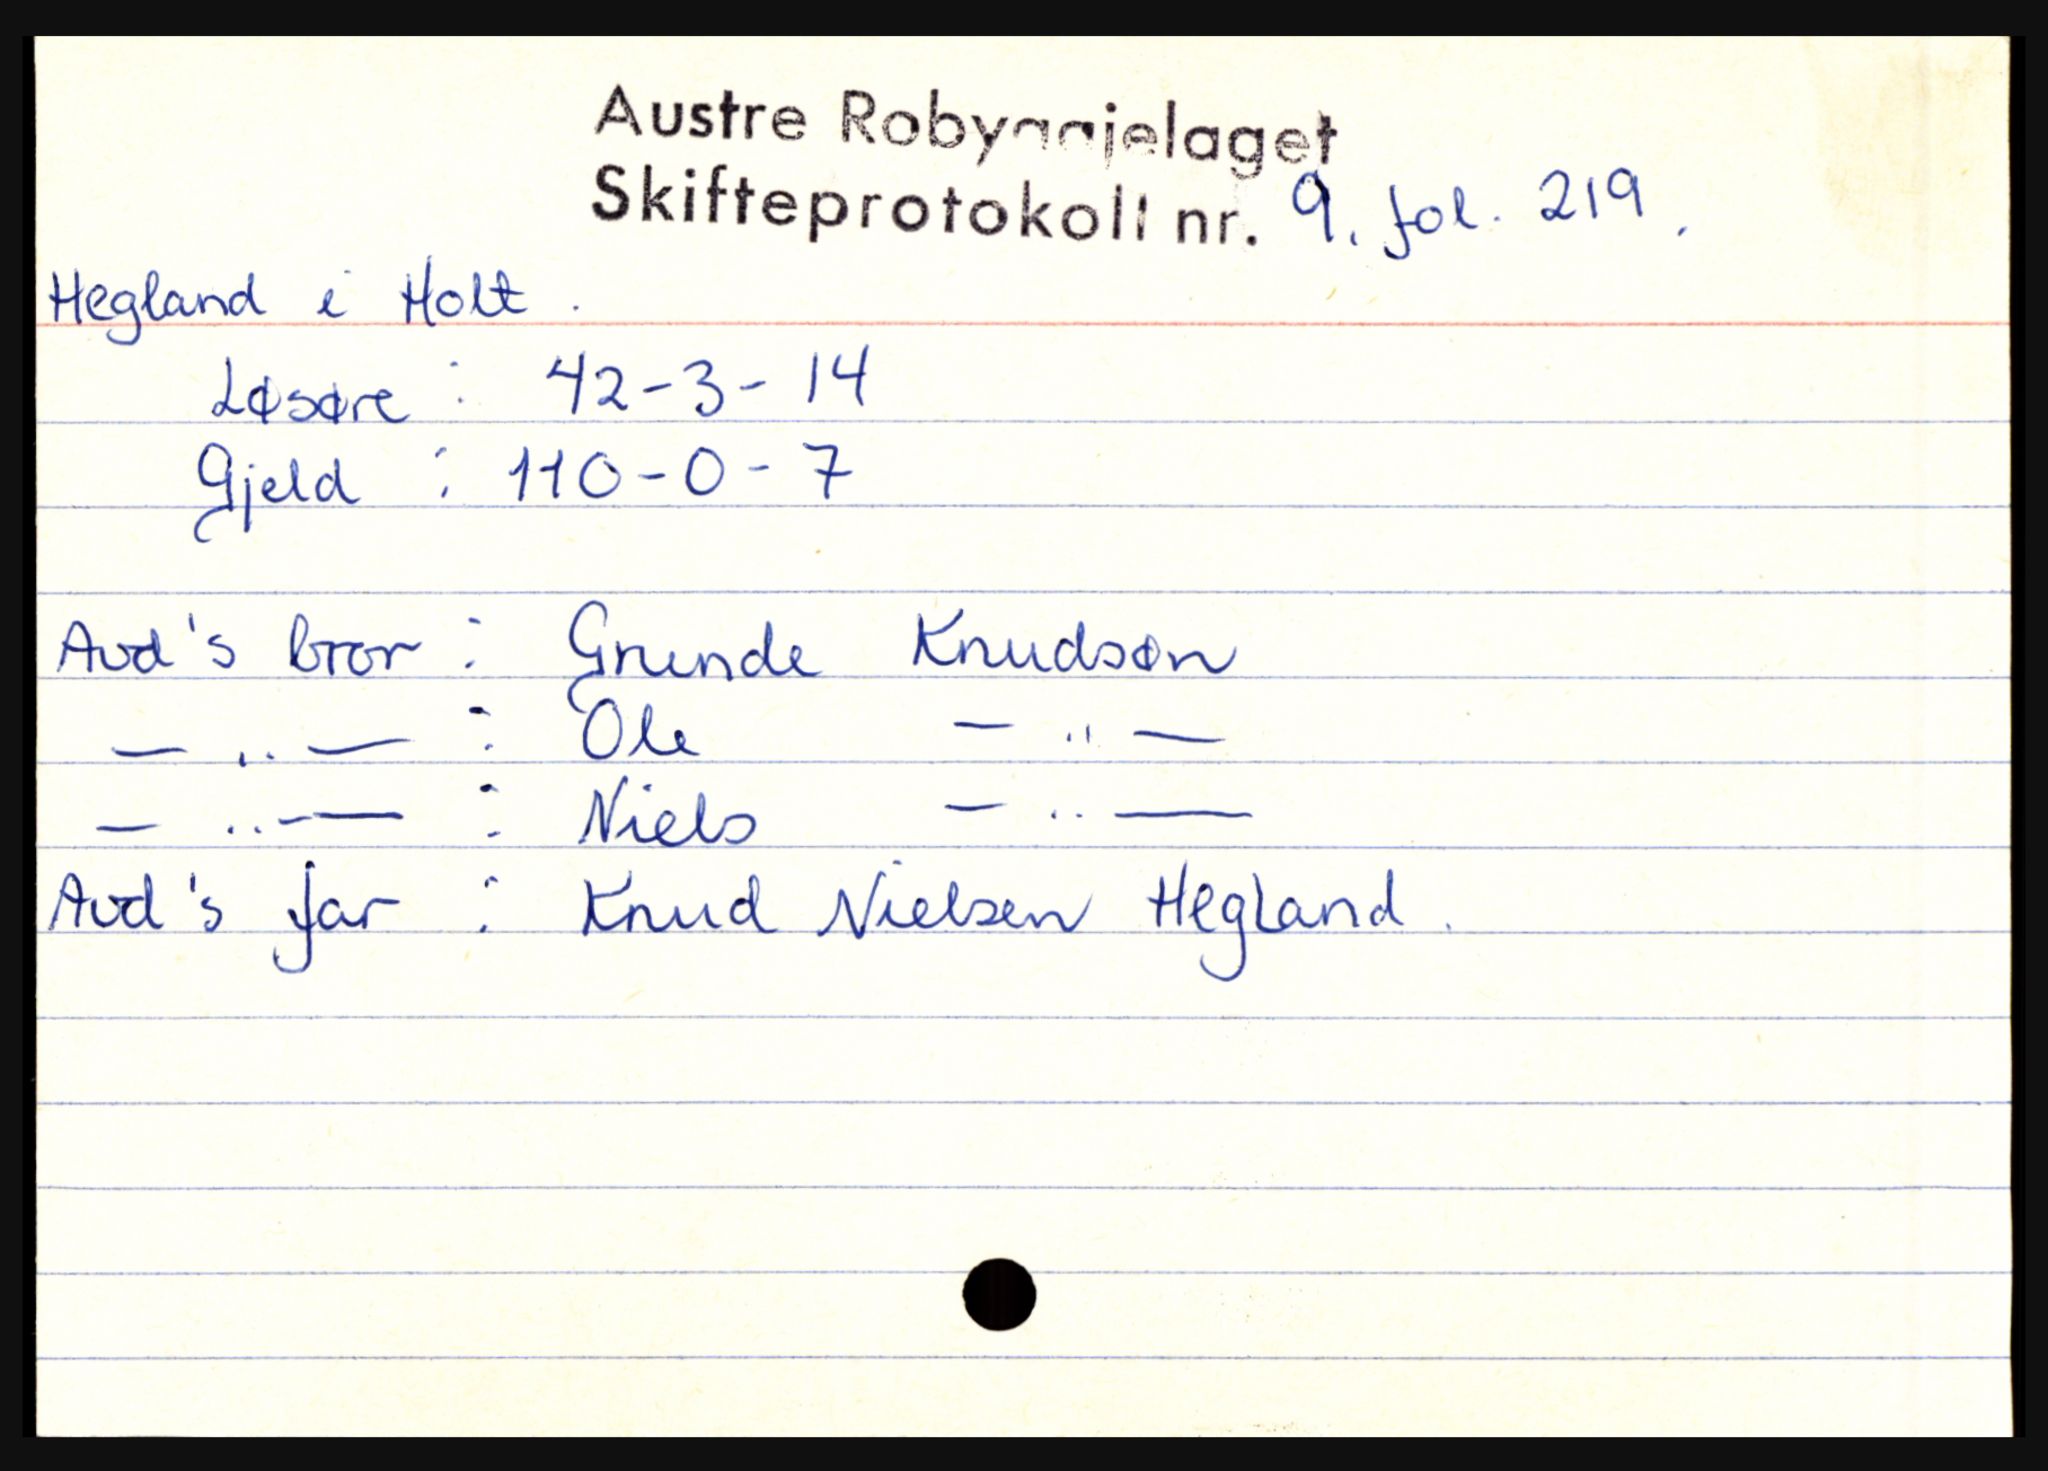 Austre Robyggjelaget
Skifteprotokoll nr. 9. fol. 219.
Hegland i Holt.
Løsøre : 42-3-14
Gjeld : 110-0-7
Avd's bror : Grunde Knudsøn
— ,, — : Ole — ,, —
— ,, — : Niels — ,, —
Avd's far : Knud Nielsen Hegland.